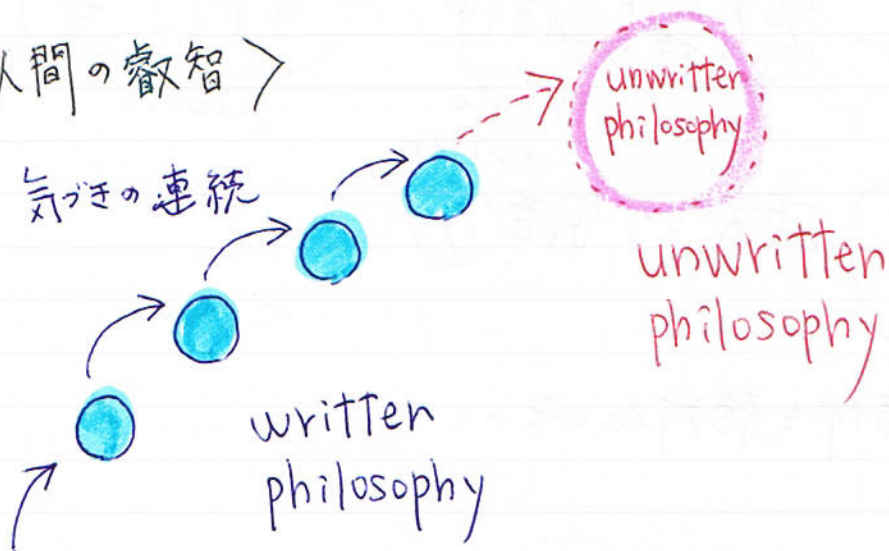 人間の叡智〉
気づきの連続
unwritten
philosophy
unwritten
philosophy
written
philosophy